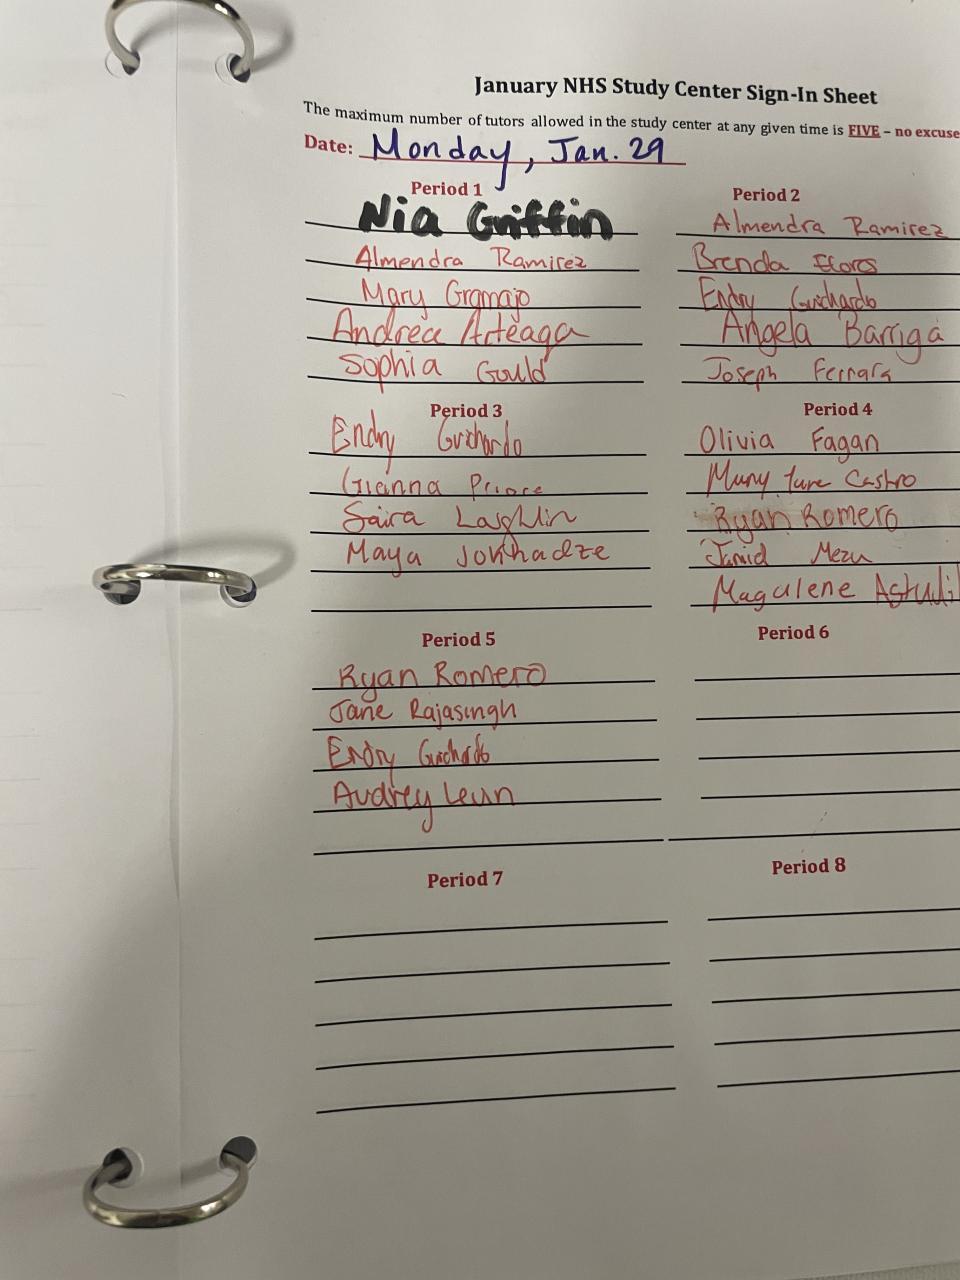 January NHS Study Center Sign-In Sheet
The maximum number of tutors allowed in the study center at any given time is FIVE – no excuse
Date: Monday, Jan. 29
Period 1
Nia Griffin
Almendra Ramirez
Mary Gramajo
Andrea Arteaga
Sophia Gould
Period 2
Almendra Ramirez
Brenda
Endry Guichardo
Angela Barriga
Joseph Ferrara
Period 3
Endry Guichardo
Gianna Priore
Saira
Maya Jokhadze
Period 4
Olivia Fagan
Castro
Ryan Romero
Magalene Astudil
Period 5
Ryan Romero
Jane Rajasingh
Endry Guichardo
Audrey
Period 6
Period 7
Period 8